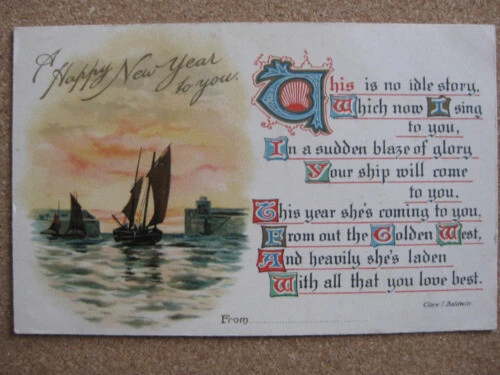 A
Happy New Year
to you.
This is no idle story,
Which now I sing
to you,
In a sudden blaze of glory
Your ship will come
to you.
This year she's coming to you,
From out the Golden West,
And heavily she's laden
With all that you love best.
Clare T. Baldwin
From